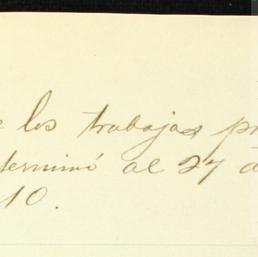 los trabajos
terminó al 27
10.